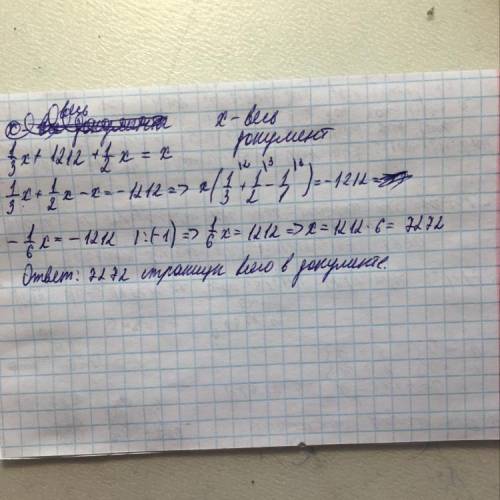 весь
x - весь документ
1/3 x + 1212 + 1/2 x = x
1/3 x + 1/2 x - x = -1212 => x(1/3 + 1/2 - 1/1) = -1212
-1/6 x = -1212 | : (-1) => 1/6 x = 1212 => x = 1212 · 6 = 7272
Ответ: 7272 страницы всего в документе.